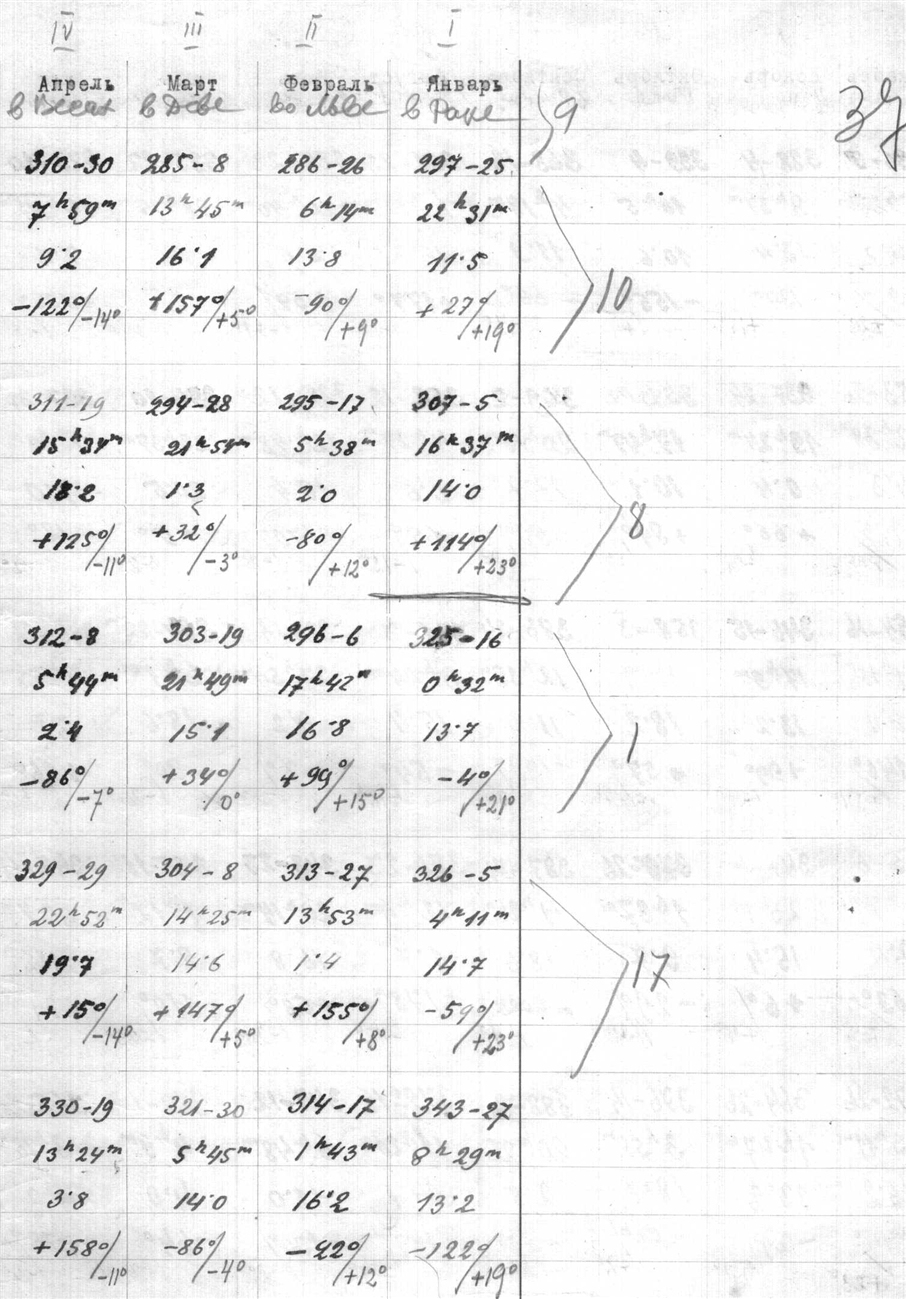 IV III II I
Апрель Март Февраль Январь
в Весах в Деве во Льве в Раке 9 37
310-30 285-8 286-26 297-25
7ʰ59ᵐ 13ʰ45ᵐ 6ʰ14ᵐ 22ʰ31ᵐ
9·2 16·1 13·8 11·5
-122°/-14° +157°/+5° -90°/+9° +27°/+19° 10
311-19 294-28 295-17 307-5
15ʰ31ᵐ 21ʰ51ᵐ 5ʰ38ᵐ 16ʰ37ᵐ
18·2 1·3 2·0 14·0 8
+125°/-11° +32°/-3° -80°/+12° +114°/+23°
312-8 303-19 296-6 325-16
5ʰ44ᵐ 21ʰ49ᵐ 17ʰ42ᵐ 0ʰ32ᵐ
2·4 15·1 16·8 13·7 1
-86°/-7° +34°/0° +99°/+15° -4°/+21°
329-29 304-8 313-27 326-5
22ʰ52ᵐ 14ʰ25ᵐ 13ʰ53ᵐ 4ʰ11ᵐ
19·7 14·6 1·4 14·7 17
+15°/-14° +147°/+5° +155°/+8° -59°/+23°
330-19 321-30 314-17 343-27
13ʰ24ᵐ 5ʰ45ᵐ 1ʰ43ᵐ 8ʰ29ᵐ
3·8 14·0 16·2 13·2
+158°/-11° -86°/-4° -22°/+12° -122°/+19°